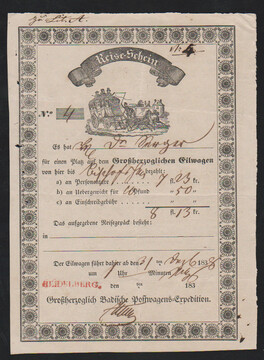 zu Lit. A.
4
Reise-Schein
No. 4
Es hat Dr
für einen Platz auf dem Großherzoglichen Eilwagen
von hier bis bezahlt:
a) an Personentaxe 7 fl. 23 kr.
b) an Uebergewicht für Pfund „ 50 „
c) an Einschreibgebühr „ „
8 fl. 13 kr.
Das aufgegebene Reisegepäck besteht
in
Der Eilwagen fährt daher ab den 21 183
um 1 Uhr Minuten
HEIDELBERG, den 183
Großherzoglich Badische Postwagens-Expedition.